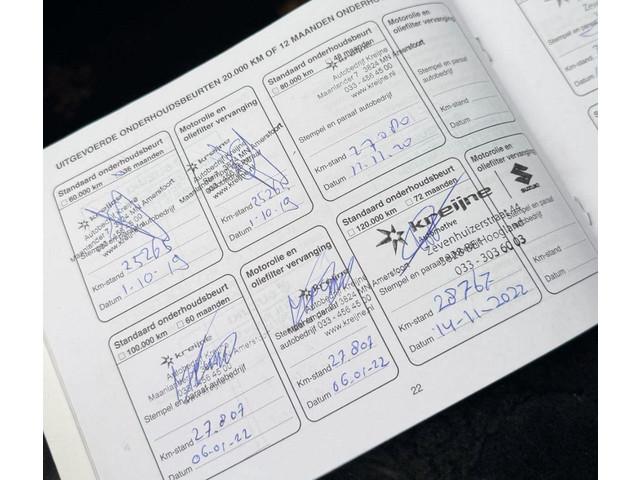 UITGEVOERDE ONDERHOUDSBEURTEN 20.000 KM OF 12 MAANDEN ONDERHO
Standaard onderhoudsbeurt
60.000 km 36 maanden
kreijne
Autobedrijf Kreijne
Maanlander 7 3824 MN Amersfoort
Stempel en paraaf autobedrijf
www.kreijne.nl
Km-stand 25265
Datum 1-10-19
Motorolie en
oliefilter vervanging
kreijne
Autobedrijf Kreijne
Maanlander 7 3824 MN Amersfoort
www.kreijne.nl
Km-stand 25265
Datum 1-10-19
Standaard onderhoudsbeurt
80.000 km 48 maanden
Autobedrijf Kreijne
Maanlander 7 3824 MN Amersfoort
033 - 456 45 00
www.kreijne.nl
Stempel en paraaf autobedrijf
Km-stand 27080
Datum 11-11-20
Motorolie en
oliefilter vervanging
Stempel en paraaf
autobedrijf
Km-stand
Datum
Standaard onderhoudsbeurt
100.000 km 60 maanden
kreijne
Autobedrijf Kreijne
Maanlander 7 3824 MN Amersfoort
033 - 456 45 00
Stempel en paraaf autobedrijf
www.kreijne.nl
Km-stand 27.807
Datum 06-01-22
Motorolie en
oliefilter vervanging
Autobedrijf Kreijne
Stempel en paraaf 3824 MN Amersfoort
autobedrijf 033 - 456 45 00
www.kreijne.nl
Km-stand 27.807
Datum 06-01-22
Standaard onderhoudsbeurt
120.000 km 72 maanden
kreijne
automotive
Zevenhuizerstraat 44
Stempel en paraaf autobedrijf
Hoogland
033 - 303 60 03
Km-stand 28767
Datum 14-11-2022
Motorolie en
oliefilter vervanging
SUZUKI
Stempel en paraaf
autobedrijf
Km-stand
Datum
22